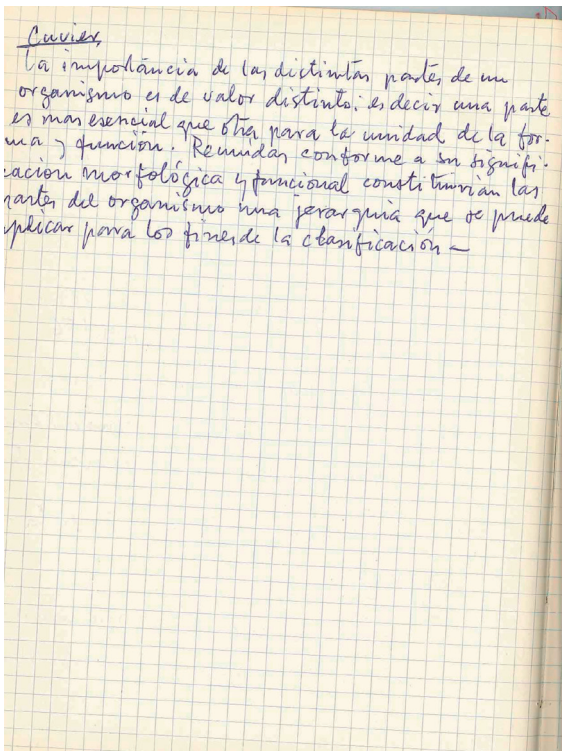 Cuvier,
La importáncia de las dictintas partes de un
organismo es de valor distinto; es decir una parte
es mas esencial que otra para la unidad de la for-
ma y función. Reunidas conforme a su signifi-
cación morfológica y funcional constituirian las
partes del organismo una jerarquia que se puede
aplicar para los fines de la clasificación —